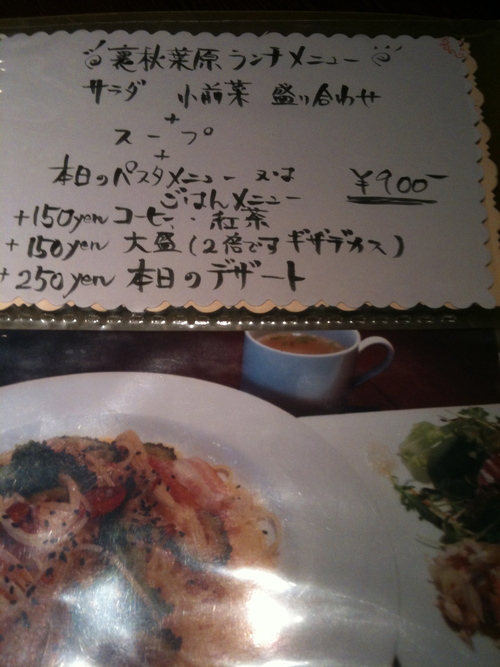 裏秋葉原 ランチメニュー
サラダ 小前菜 盛り合わせ
+
スープ
+
本日のパスタメニュー 又は
ごはんメニュー ¥900-
+150yen コーヒー・紅茶
+150yen 大盛(2倍です ギザデカス)
+250yen 本日のデザート